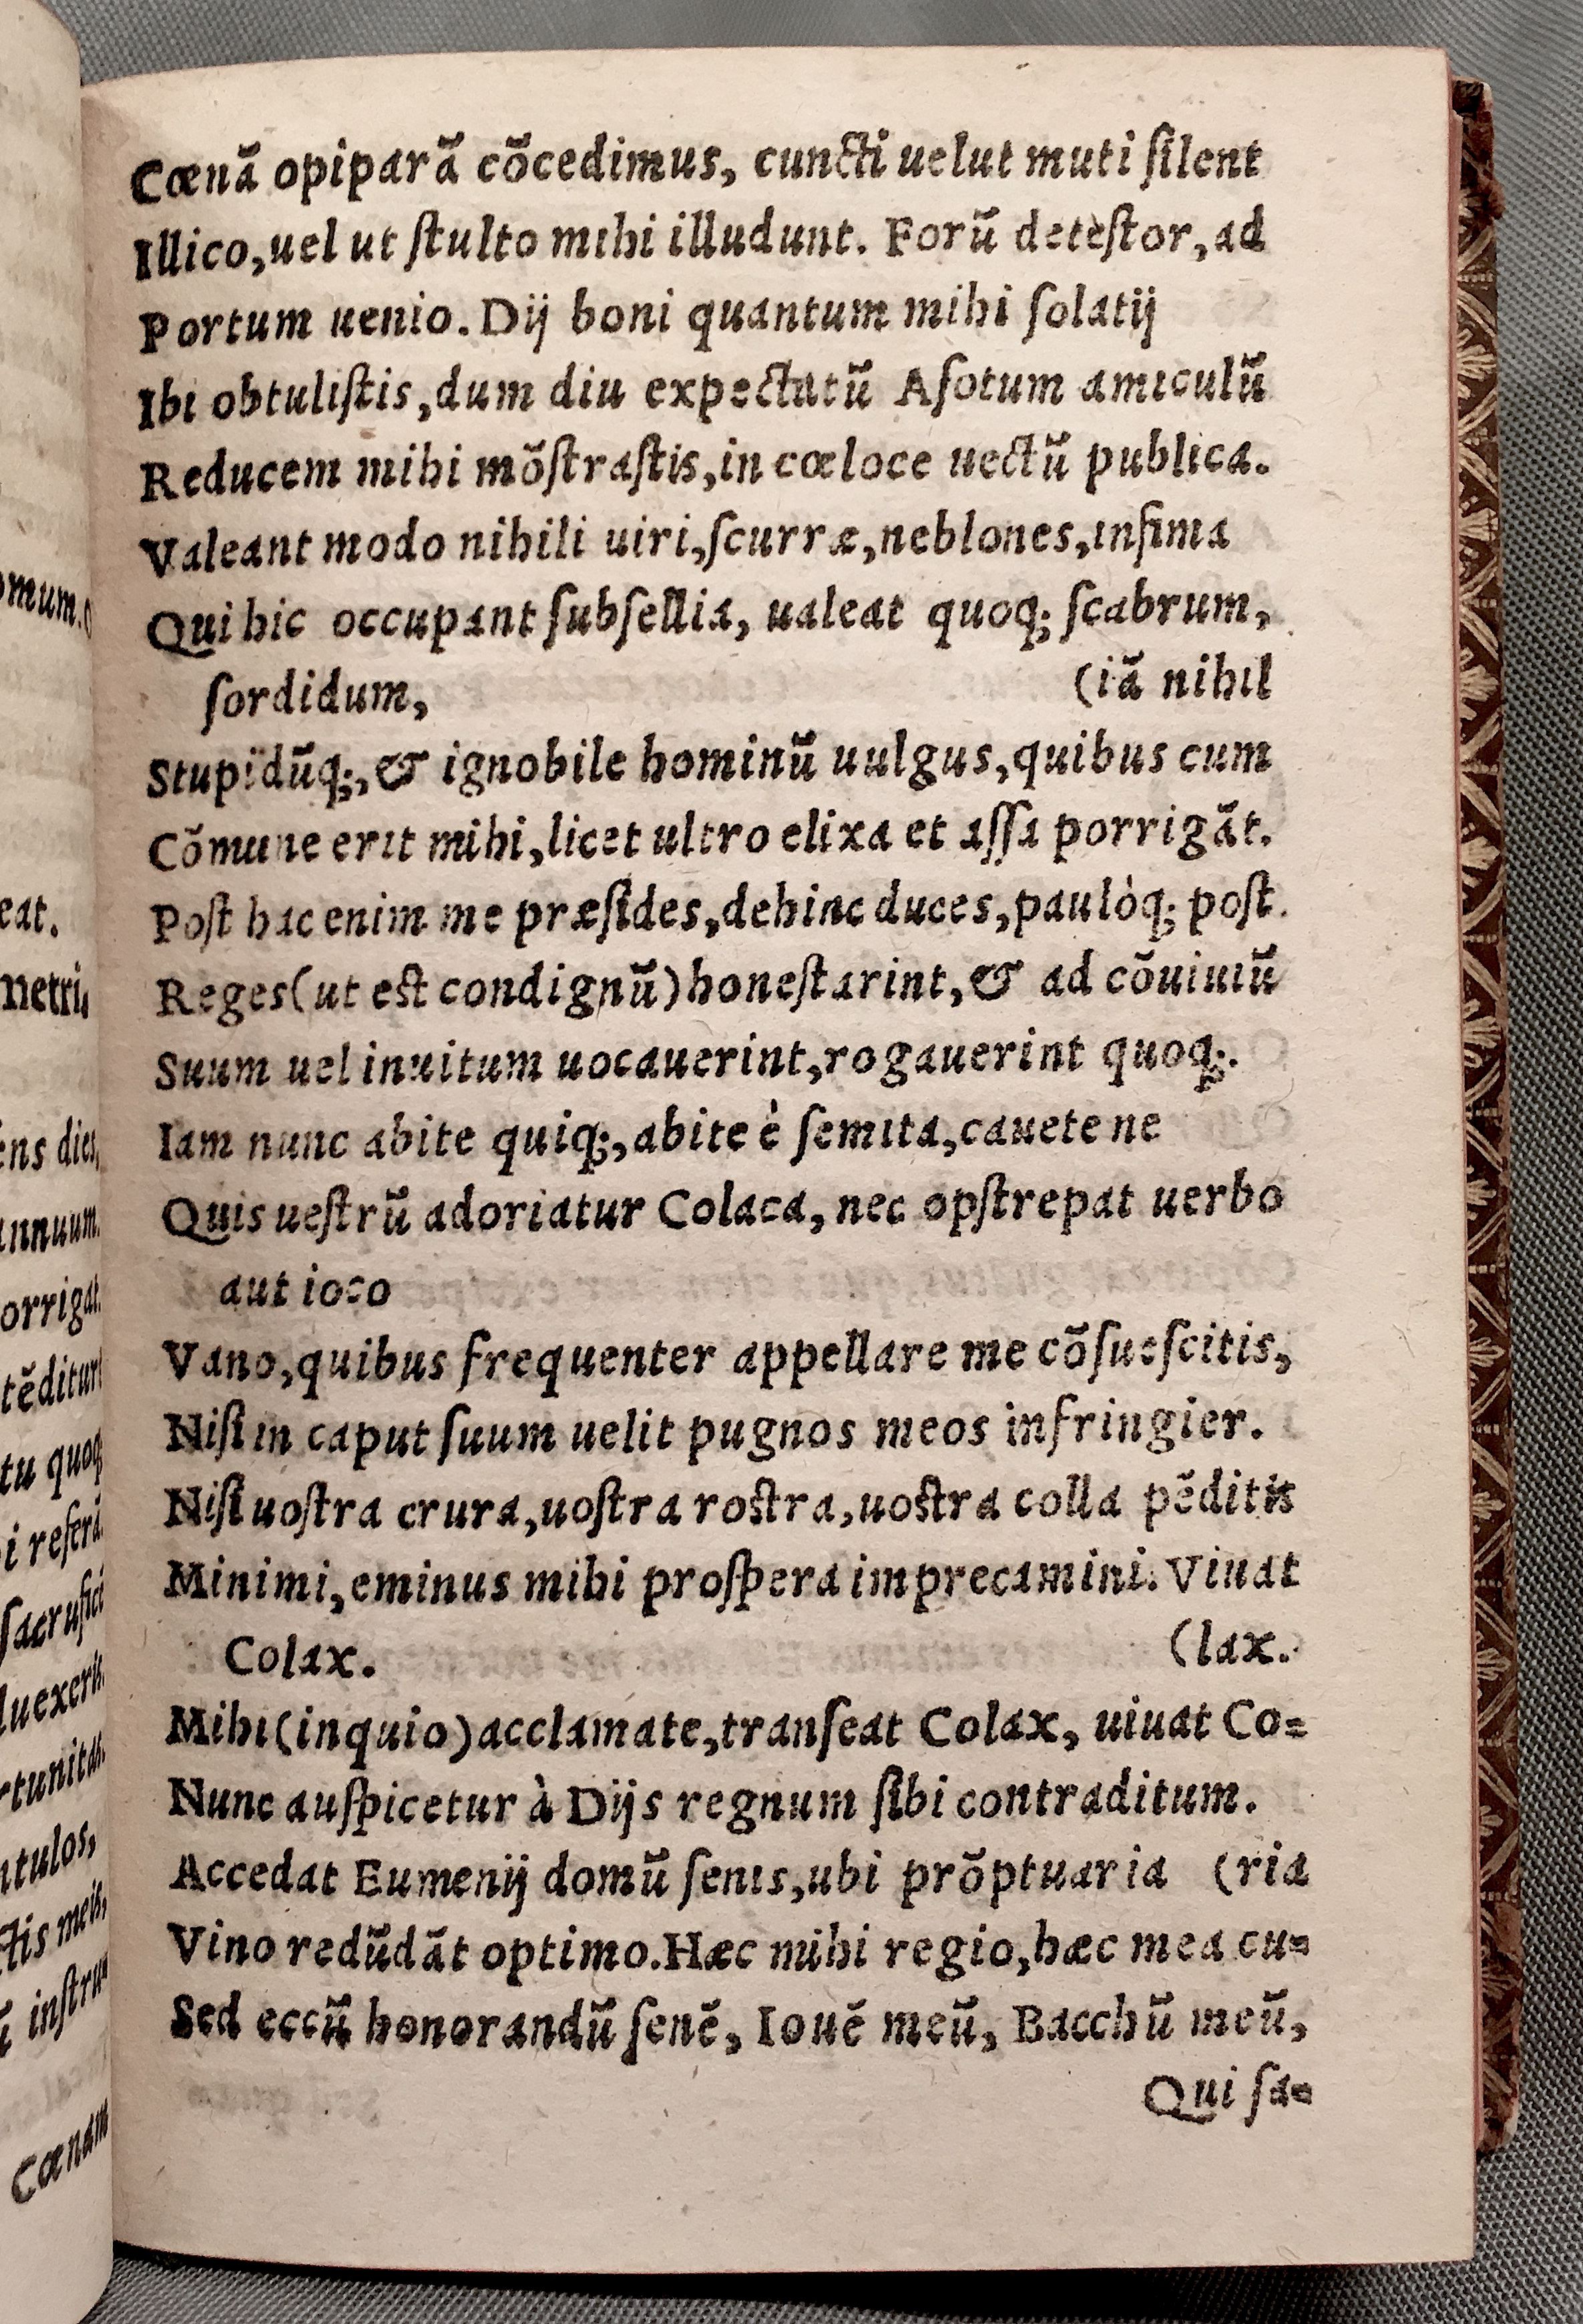 Cœnā opiparā cōcedimus, cuncti uelut muti ſilent
Illico,uel ut ſtulto mihi illudunt. Forū deteſtor,ad
Portum uenio. Dij boni quantum mihi ſolatij
Ibi obtuliſtis,dum diu expectatū Aſotum amiculū
Reducem mihi mōſtraſtis,in cœloce uectū publica.
Valeant modo nihili uiri,ſcurræ,neblones,infima
Qui hic occupant ſubſellia, ualeat quoq; ſcabrum,
ſordidum, (iā nihil
Stupidūq;,& ignobile hominū uulgus,quibus cum
Cōmune erit mihi,licet ultro elixa et aſſa porrigāt.
Poſt hac enim me præſides,dehinc duces,paulòq; poſt
Reges(ut eſt condignū)honeſtarint,& ad cōuiuiū
Suum uel inuitum uocauerint,rogauerint quoq;.
Iam nunc abite quiq;,abite è ſemita,cauete ne
Quis ueſtrū adoriatur Colaca, nec opſtrepat uerbo
aut ioco
Vano,quibus frequenter appellare me cōſueſcitis,
Niſi in caput ſuum uelit pugnos meos infringier.
Niſi uoſtra crura,uoſtra roſtra,uoſtra colla pēditis
Minimi,eminus mihi proſpera imprecamini. Viuat
Colax. (lax.
Mihi(inquio)acclamate,tranſeat Colax, uiuat Co=
Nunc auſpicetur à Dijs regnum ſibi contraditum.
Accedat Eumenij domū ſenis,ubi prōptuaria (ria
Vino redūdāt optimo.Hæc mihi regio,hæc mea cu=
Sed eccū honorandū ſenē, Iouē meū, Bacchū meū,
Qui ſa=
omum.
eat.
metri
ens dies,
annuum.
orrigat.
tēditur
tu quoq;
i referā
ſacrufici
luxerit
ntulos,
ctis meis,
inſtru
Cœnam